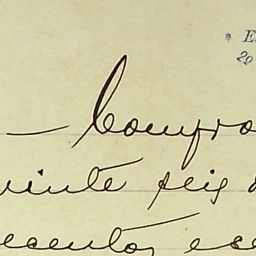 E
20
— Compro
vinte seis d
ecentos esc